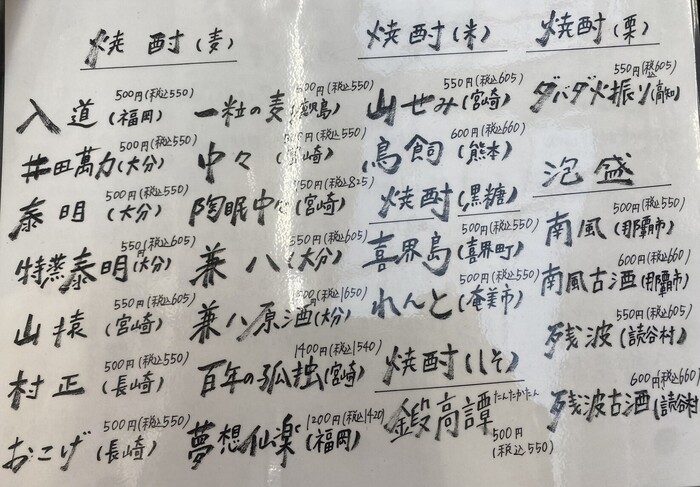 焼酎(麦)
500円(税込550)
入道(福岡)
500円(税込550)
井田萬力(大分)
500円(税込550)
泰明(大分)
550円(税込605)
特蒸泰明(大分)
550円(税込605)
山猿(宮崎)
500円(税込550)
村正(長崎)
500円(税込550)
おこげ(長崎)
500円(税込550)
一粒の麦
(税込550)
中々
(税込825)
陶眠中々(宮崎)
550円(税込605)
兼八(大分)
(税込1650)
兼八原酒(大分)
1400円(税込1540)
百年の孤独(宮崎)
1200円(税込1420)
夢想仙楽(福岡)
焼酎(米)
550円(税込605)
山せみ(宮崎)
600円(税込660)
鳥飼(熊本)
焼酎(黒糖)
500円(税込550)
喜界島(喜界町)
500円(税込550)
れんと(奄美市)
焼酎(しそ)
たんたかたん
鍛高譚
500円
(税込550)
焼酎(栗)
550円(税込605)
ダバダ火振り(高知)
泡盛
500円(税込550)
南風(那覇市)
600円(税込660)
南風古酒(那覇市)
550円(税込605)
残波(読谷村)
600円(税込660)
残波古酒(読谷村)